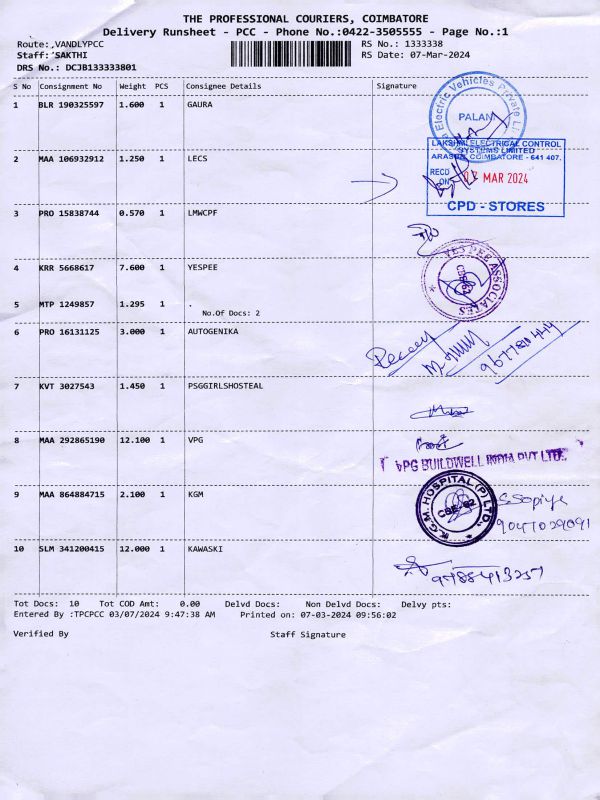 THE PROFESSIONAL COURIERS, COIMBATORE
Delivery Runsheet - PCC - Phone No.:0422-3505555 - Page No.:1
Route:,VANDLYPCC
RS No.: 1333338
Staff:'SAKTHI
RS Date: 07-Mar-2024
DRS No.: DCJB133333801
S No Consignment No Weight PCS Consignee Details Signature
1 BLR 190325597 1.600 1 GAURA
Electric Vehicles Private
PALAN
2 MAA 106932912 1.250 1 LECS
LAKSHMI ELECTRICAL CONTROL
SYSTEMS LIMITED
ARASUR, COIMBATORE - 641 407.
RECD
ON
MAR 2024
CPD - STORES
3 PRO 15838744 0.570 1 LMWCPF
4 KRR 5668617 7.600 1 YESPEE
YESPEE ASSOCIATES
5 MTP 1249857 1.295 1 .
No.Of Docs: 2
6 PRO 16131125 3.000 1 AUTOGENIKA
7 KVT 3027543 1.450 1 PSGGIRLSHOSTEAL
8 MAA 292865190 12.100 1 VPG
VPG BUILDWELL INDIA PVT LTD.
9 MAA 864884715 2.100 1 KGM
K.G.M HOSPITAL (P) LTD.
9047029091
10 SLM 341200415 12.000 1 KAWASKI
9788413257
Tot Docs: 10 Tot COD Amt: 0.00 Delvd Docs: Non Delvd Docs: Delvy pts:
Entered By :TPCPCC 03/07/2024 9:47:38 AM Printed on: 07-03-2024 09:56:02
Verified By Staff Signature